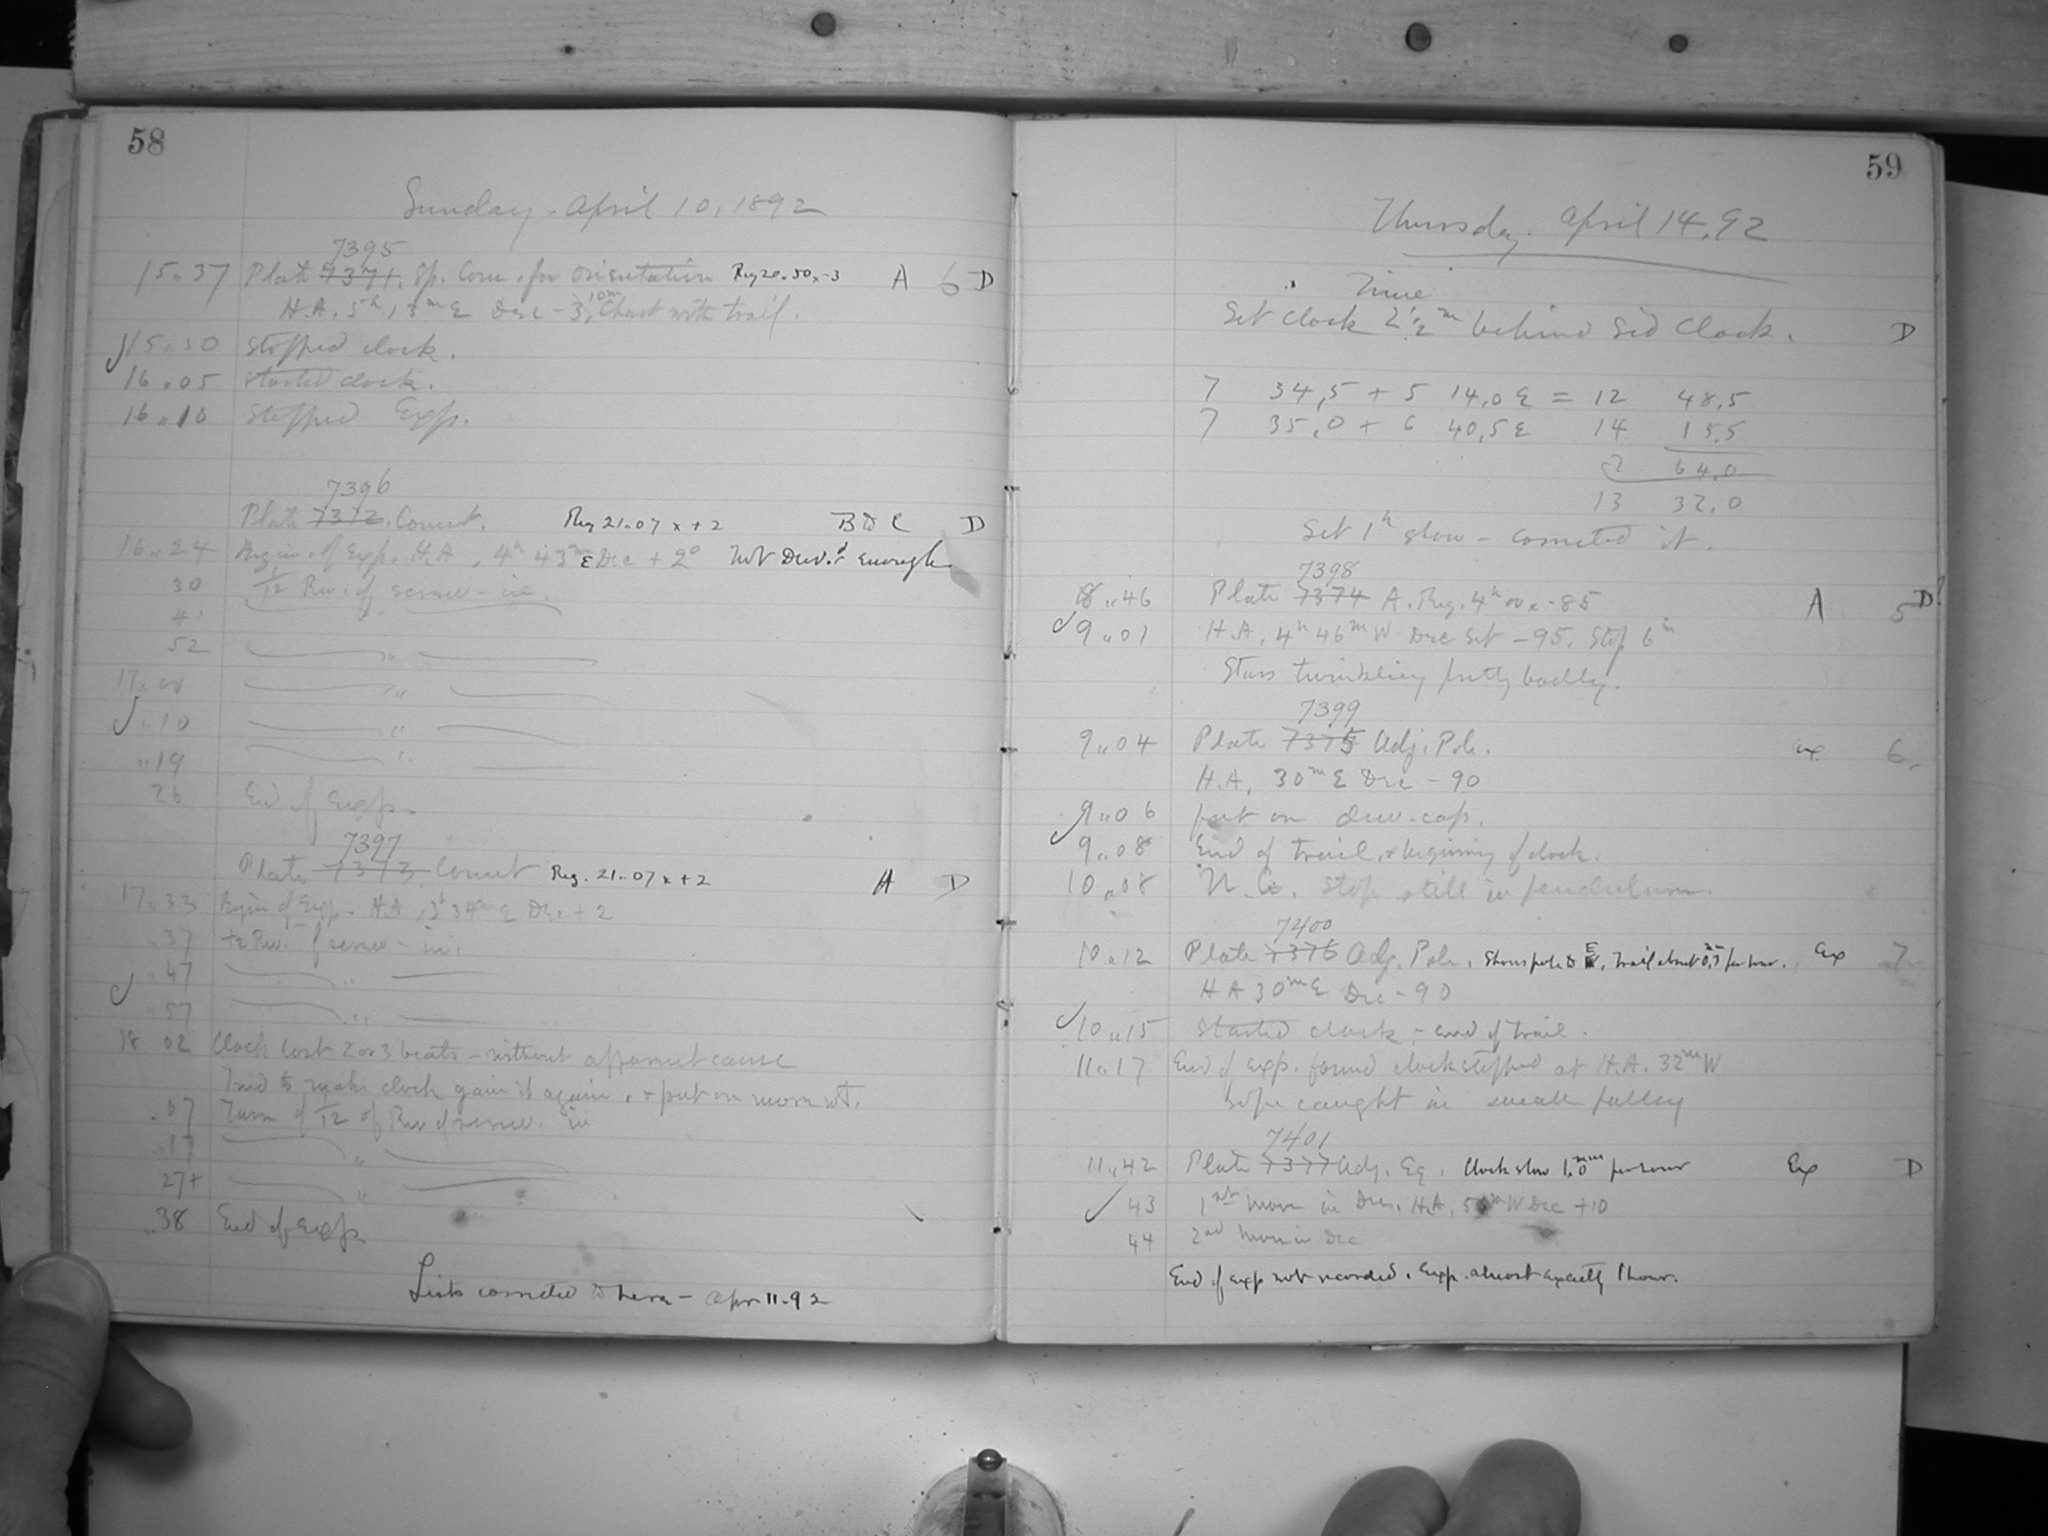 58
Sunday. April 10, 1892
7395
15 37 Plate 7371. Sp. Com. for orientation Reg 20.50 x -3 A 6 D
H.A. 5h 13m E Dec - 3, 10m Chart with trail.
15 50 Stopped clock.
16 05 Started clock.
16 10 Stopped Exp.
7396
Plate 7372. Comet. Reg 21.07 x + 2 D
16 24 Begin. of Exp. H.A. 4h 43m E Dec + 2° Not Dev.d enough
30 1/2 Rev. of screw - in.
41
52 "
17 00 "
" 10 "
" 19 "
26 End of Exp.
7397
Plate 7373. Comet Reg. 21.07 x + 2 A D
17 33 Begin of Exp. H.A. 3h 34m E Dec + 2
37 1/2 Rev. of screw - in.
47 "
57 "
18 02 Clock lost 2 or 3 beats - without apparent cause
Tried to make clock gain it again, & put on more wt.
.07 Turn of 1/2 of Rev of screw. in
17 "
27+ "
38 End of Exp
Lists corrected to here - Apr 11-92
59
Thursday. April 14, 92
Time
Set Clock 2 1/2 m behind Sid Clock. D
7 34,5 + 5 14,0 E = 12 48,5
7 35,0 + 6 40,5 E 14 15,5
2 64,0
13 32,0
Set 1h slow - corrected it.
7398
8 46 Plate 7374 A. Reg. 4h 00 x -85 A 5 D?
9 01 H.A. 4h 46m W Dec Set -95. Stop 6m
Stars twinkling pretty badly.
7399
9 04 Plate 7375 Adj. Pole. Ex 6.
H.A. 30m E Dec - 90
9 06 put on dew-cap.
9 08 End of trail, & beginning of clock.
10 08 N.G. Stop still in pendulum.
7400
10 12 Plate 7376 Adj. Pole. Shows pole to E, Trail about 0.3 per hour. Ex 7
H A 30m E Dec - 90
10 15 Started clock - end of trail.
11 17 End of exp. found clock stopped at H.A. 32m W
Rope caught in small pulley
7401
11 42 Plate 7377 Adj. Eq. Clock slow 1.0 mm per hour Ex D
43 1st move in Dec. H.A. m W Dec +10
44 2nd move in Dec
End of exp not recorded. Exp. almost exactly 1 hour.